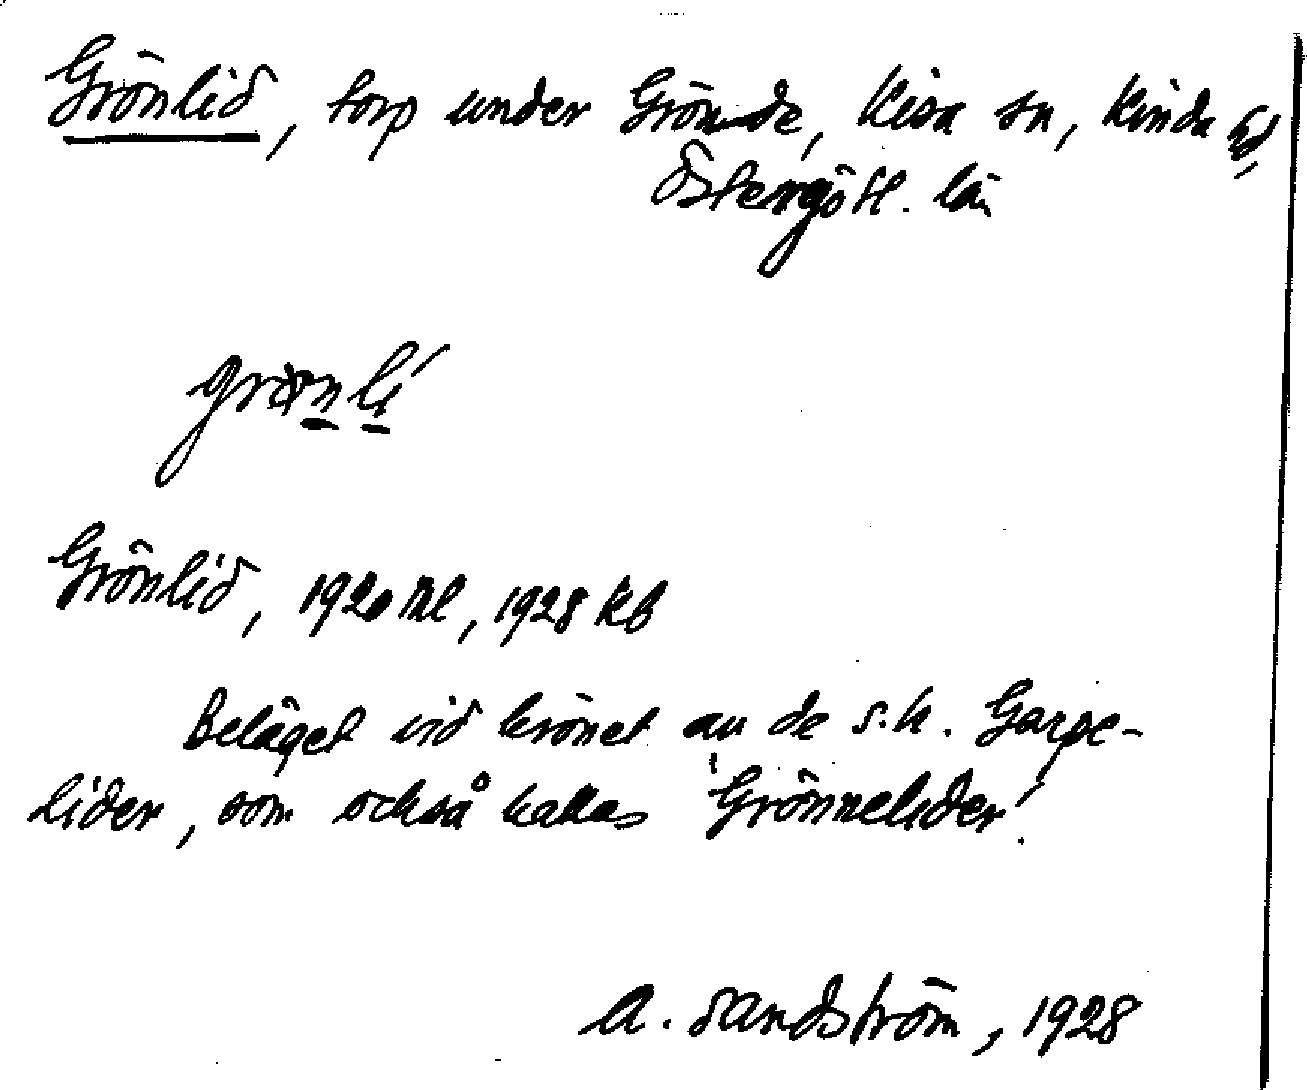 Grönlid, torp under Grönede, Kisa sn, Kinda hd,
Östergötl. län
grönlí
Grönlid, 1920 Ml, 1928 kb
Beläget vid krönet av de s.k. Garpe-
lider, som också kallas 'Grönnelider'.
A. Sandström, 1928